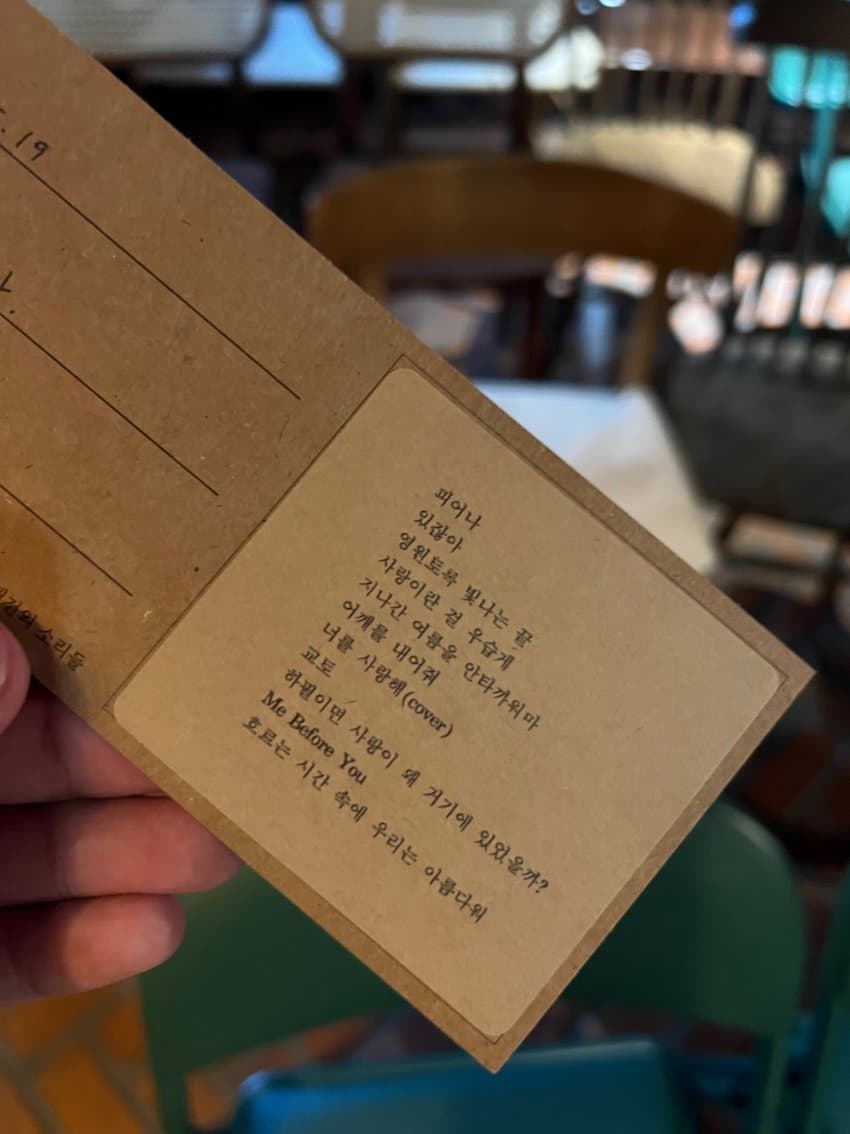 .19
피어나
있잖아
영원토록 빛나는 끝
사랑이란 걸 우습게
지나간 여름을 안타까워마
어깨를 내어줘
너를 사랑해(cover)
교토
하필이면 사랑이 왜 거기에 있었을까?
Me Before You
흐르는 시간 속에 우리는 아름다워
소리들